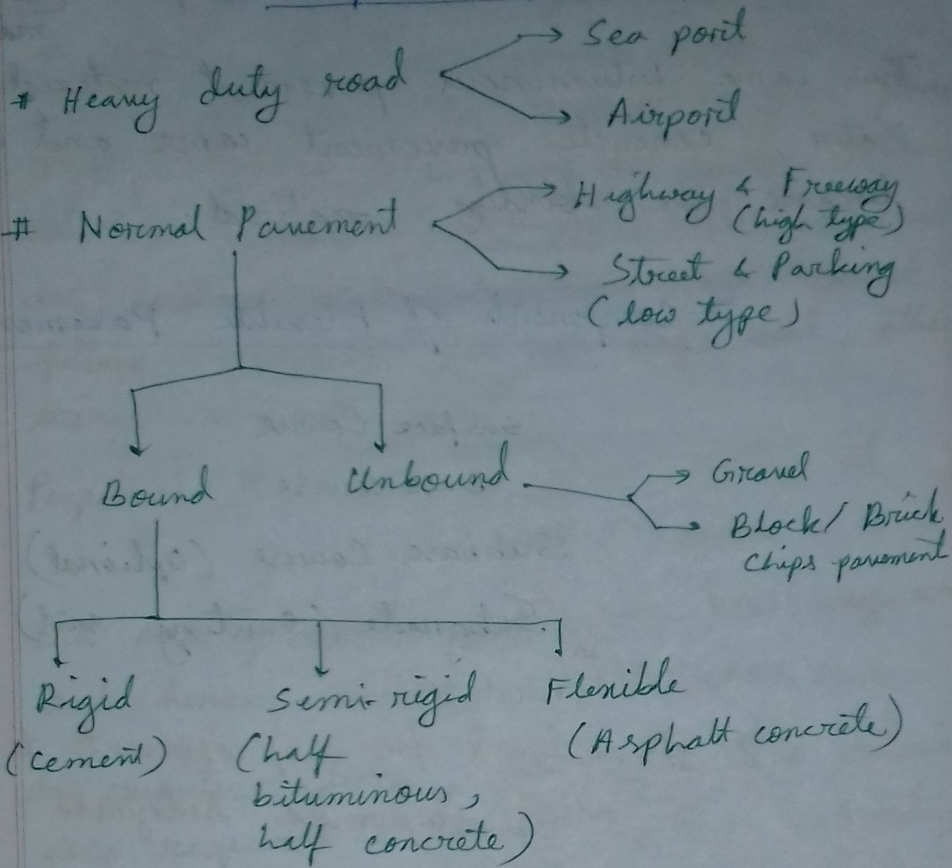 * Heavy duty road
Sea port
Airport
# Normal Pavement
Highway & Freeway
(high type)
Street & Parking
(low type)
Bound
Unbound
Gravel
Block/ Brick
Chips pavement
Rigid
(cement)
Semi-rigid
(half
bituminous,
half concrete)
Flexible
(Asphalt concrete)